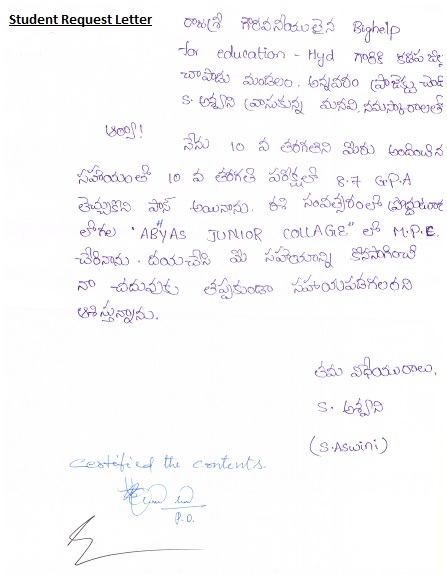 Student Request Letter
రాజశ్రీ గౌరవనీయులైన Bighelp
for education - Hyd గారికి కడప జిల్లా
చాపాడు మండలం. అన్నవరం ప్రాజెక్టు చెంది
S. అశ్విని వ్రాసుకున్న మనవి, నమస్కారాలతో
ఆర్యా!
నేను 10 వ తరగతిని మీరు అందించిన
సహాయంతో 10 వ తరగతి పరీక్షలో 8.7 G.P.A
తెచ్చుకొని పాస్ అయినాను. ఈ సంవత్సరంలో ప్రొద్దుటూరు
లోగల "ABYAS JUNIOR COLLAGE" లో M.P.C.
చేరినాను. దయచేసి మీ సహాయాన్ని కొనసాగించి
నా చదువుకు తప్పకుండా సహాయపడగలరని
ఆశిస్తున్నాను.
తమ విధేయురాలు,
S. అశ్విని
(S.Aswini)
certified the contents.
P.D.